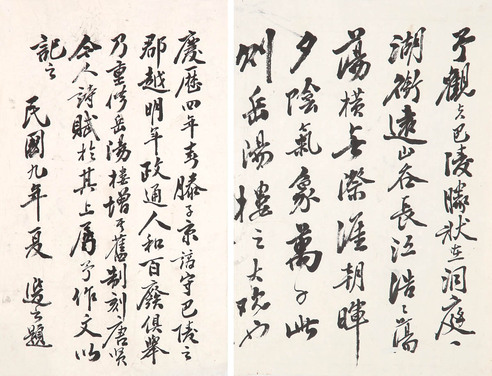 予觀夫巴陵勝狀在洞庭一
湖銜遠山吞長江浩々蕩
蕩橫無際涯朝暉
夕陰氣象萬千此
則岳陽樓之大觀也
慶歷四年春滕子京謫守巴陵之
郡越明年政通人和百廢俱舉
乃重修岳陽樓增其舊制刻唐賢
今人詩賦於其上屬予作文以
記之 民國九年夏 題